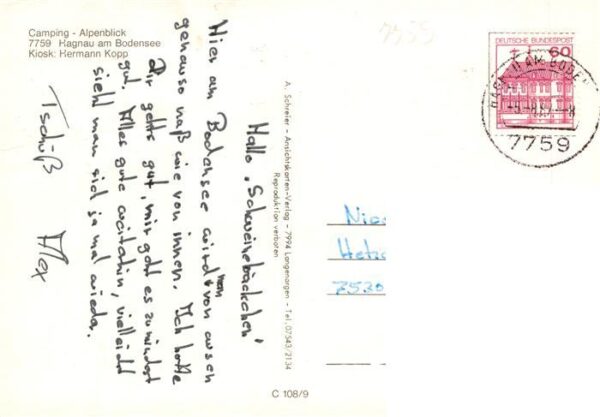 Camping - Alpenblick
7759 Hagnau am Bodensee
Kiosk: Hermann Kopp
Hallo "Schweinebäckchen"
Hier am Bodensee wird man von aussen
genauso naß wie von innen. Ich hoffe
Dir gehts gut, mir geht es zumindest
gut. Alles gute weiterhin, vielleicht
sieht man sich ja mal wieder.
Tschüß Alex
A. Schreier - Ansichtskarten-Verlag - 7994 Langenargen - Tel. 07543/2134
Reproduktion verboten
C 108/9
7759
DEUTSCHE BUNDESPOST
60
7759